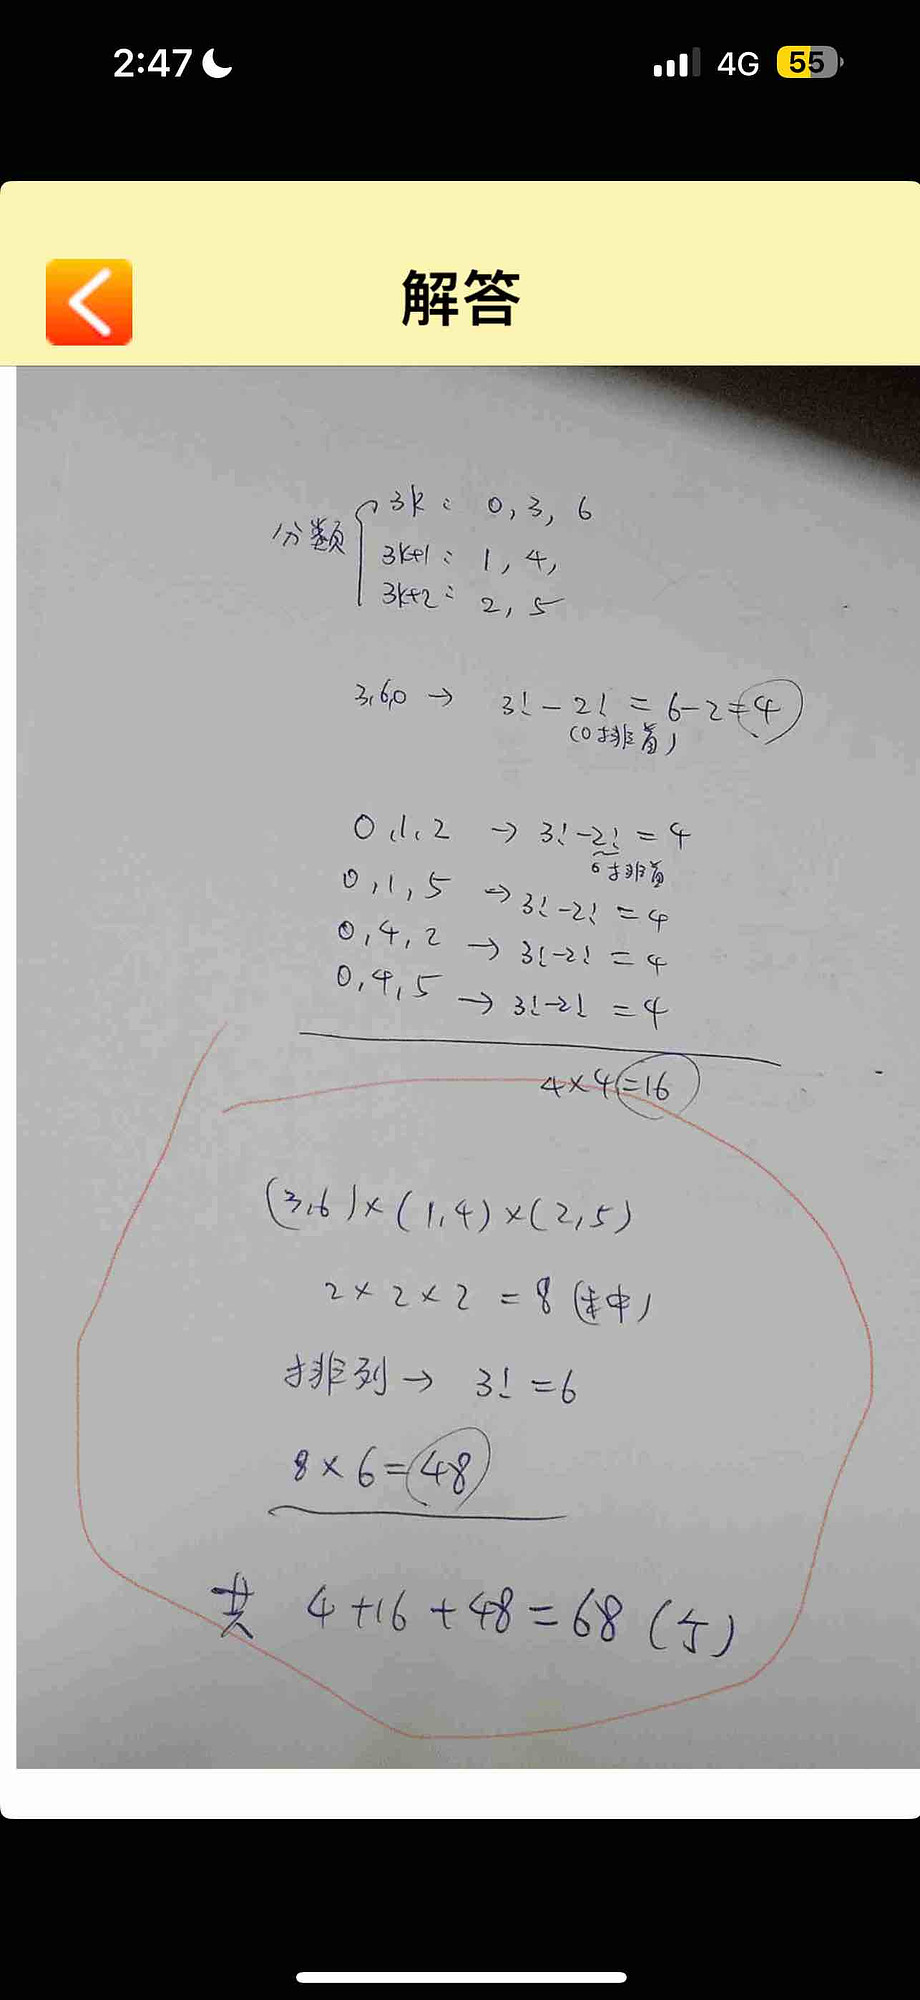 2:47
4G 55
解答
分類
3k: 0, 3, 6
3k+1: 1, 4,
3k+2: 2, 5
3,6,0 → 3! - 2! = 6-2=4
(0排首)
0,1,2 → 3!-2! = 4
0排首
0,1,5 → 3!-2! = 4
0,4,2 → 3!-2! = 4
0,4,5 → 3!-2! = 4
4×4=16
(3,6)×(1,4)×(2,5)
2×2×2 = 8
排列→ 3! =6
8×6=48
共 4+16+48=68(个)